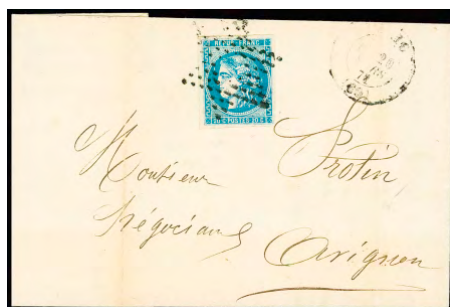 REPUB FRANC
20 C POSTES 20 C
Monsieur Protin
Négociant
Avignon